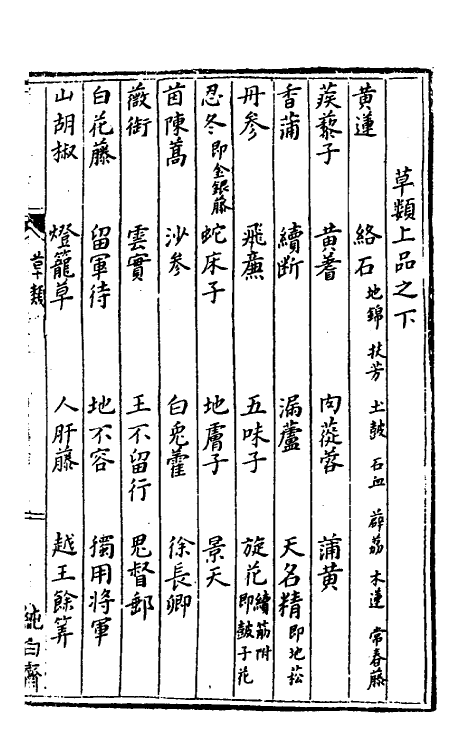 草類上品之下
黃蓮 絡石 地錦 扶芳 土鼓 石血 薜荔 木蓮 常春藤
蒺藜子 黃蓍 肉蓯蓉 蒲黃
香蒲 續斷 漏蘆 天名精 即地菘
丹參 飛廉 五味子 旋花 續筋附 即鼓子花
忍冬 即金銀藤 蛇床子 地膚子 景天
茵陳蒿 沙參 白兎藿 徐長卿
薇銜 雲實 王不留行 鬼督郵
白花藤 留軍待 地不容 獨用將軍
山胡椒 燈籠草 人肝藤 越王餘筭
草類
純白齋